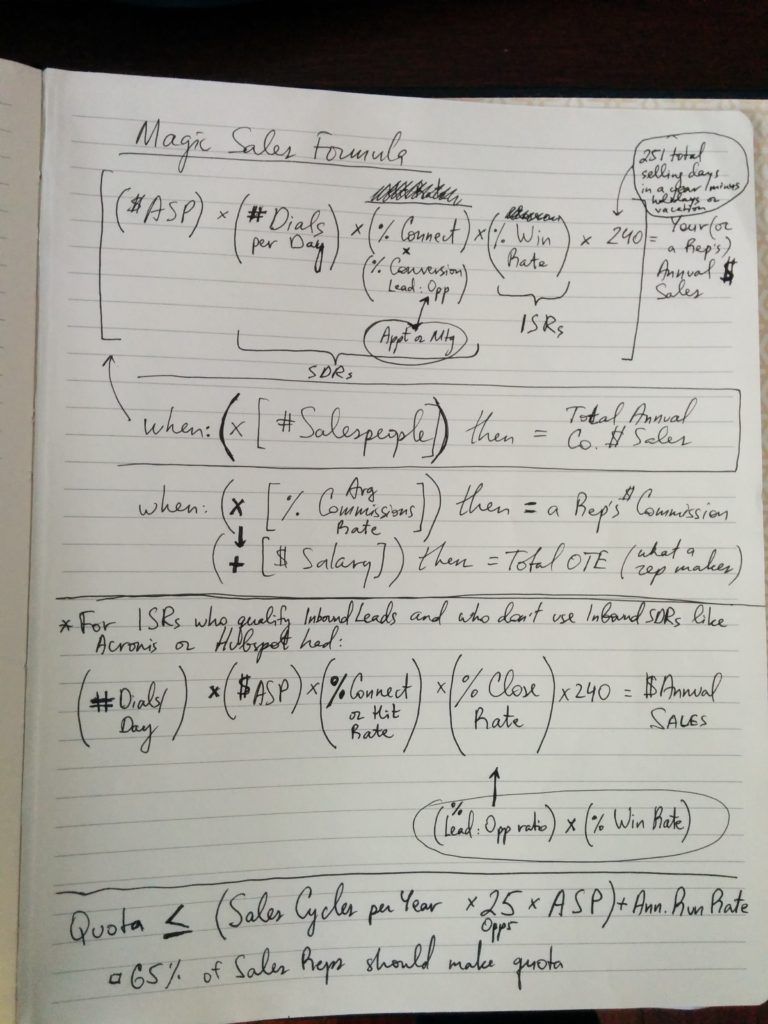 Magic Sales Formula
251 total
selling days
in a year (minus
holidays or
vacation)
[($ASP) × (# Dials per Day) × (% Connect) × (% Win Rate) × 240] = Your (or a Rep's) Annual $ Sales
×
(% Conversion
Lead : Opp)
Appt or Mtg
ISRs
SDRs
when: (× [#Salespeople]) then = Total Annual Co. $ Sales
when: (× [% Avg Commissions Rate]) then = a Rep's $ Commission
(+ [$ Salary]) then = Total OTE (what a rep makes)
* For ISRs who qualify Inbound Leads and who don't use Inbound SDRs like
Acronis or Hubspot had:
(# Dials/Day) × ($ASP) × (% Connect or Hit Rate) × (% Close Rate) × 240 = $ Annual SALES
(% Lead : Opp ratio) × (% Win Rate)
Quota ≤ (Sales Cycles per Year × 25 Opps × ASP) + Ann. Run Rate
▫ 65% of Sales Reps should make quota